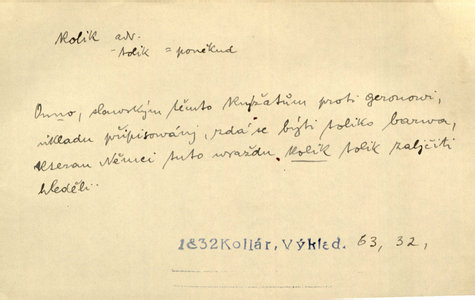 kolik adv.
-tolik = poněkud
Onno, slawským těmto knížatům proti geronowi,
úkladu připisowány, zdá se býti toliko barwa,
kterau Němci tuto wraždu kolik tolik zalíčiti
hleděli.
1832 Kollár, Výkled. 63, 32,